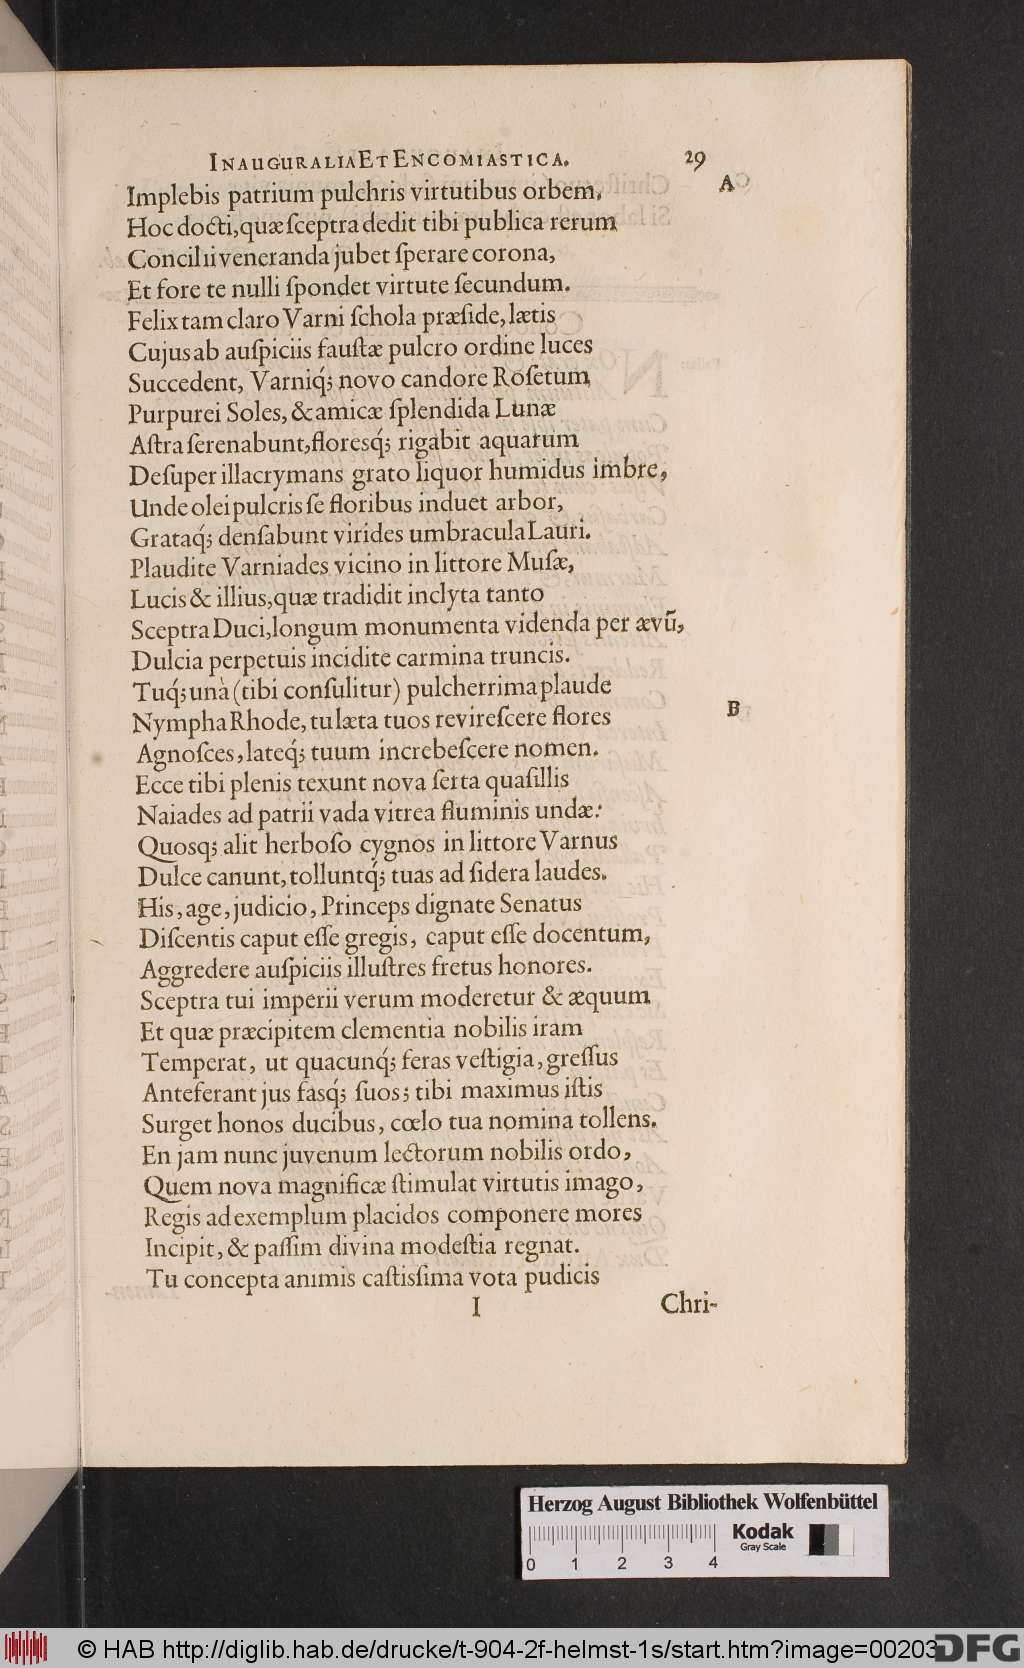 INAUGURALIA ET ENCOMIASTICA. 29
Implebis patrium pulchris virtutibus orbem, A
Hoc docti, quæ ſceptra dedit tibi publica rerum
Concilii veneranda jubet ſperare corona,
Et fore te nulli ſpondet virtute ſecundum.
Felix tam claro Varni ſchola præſide, lætis
Cujus ab auſpiciis fauſtæ pulcro ordine luces
Succedent, Varniq́; novo candore Roſetum
Purpurei Soles, & amicæ ſplendida Lunæ
Aſtra ſerenabunt, floresq́; rigabit aquarum
Deſuper illacrymans grato liquor humidus imbre,
Unde olei pulcris ſe floribus induet arbor,
Grataq́; denſabunt virides umbracula Lauri.
Plaudite Varniades vicino in littore Muſæ,
Lucis & illius, quæ tradidit inclyta tanto
Sceptra Duci, longum monumenta videnda per ævũ,
Dulcia perpetuis incidite carmina truncis.
Tuq́; unà (tibi conſulitur) pulcherrima plaude
Nympha Rhode, tu læta tuos revireſcere flores B
Agnoſces, lateq́; tuum increbeſcere nomen.
Ecce tibi plenis texunt nova ſerta quaſillis
Naiades ad patrii vada vitrea fluminis undæ:
Quosq; alit herboſo cygnos in littore Varnus
Dulce canunt, tolluntq́; tuas ad ſidera laudes.
His, age, judicio, Princeps dignate Senatus
Diſcentis caput eſſe gregis, caput eſſe docentum,
Aggredere auſpiciis illuſtres fretus honores.
Sceptra tui imperii verum moderetur & æquum
Et quæ præcipitem clementia nobilis iram
Temperat, ut quacunq́; feras veſtigia, greſſus
Anteferant jus fasq́; ſuos; tibi maximus iſtis
Surget honos ducibus, cœlo tua nomina tollens.
En jam nunc juvenum lectorum nobilis ordo,
Quem nova magnificæ ſtimulat virtutis imago,
Regis ad exemplum placidos componere mores
Incipit, & paſſim divina modeſtia regnat.
Tu concepta animis caſtisſima vota pudicis
I Chri-
Herzog August Bibliothek Wolfenbüttel
0 1 2 3 4 Kodak
Gray Scale
© HAB http://diglib.hab.de/drucke/t-904-2f-helmst-1s/start.htm?image=00203 DFG